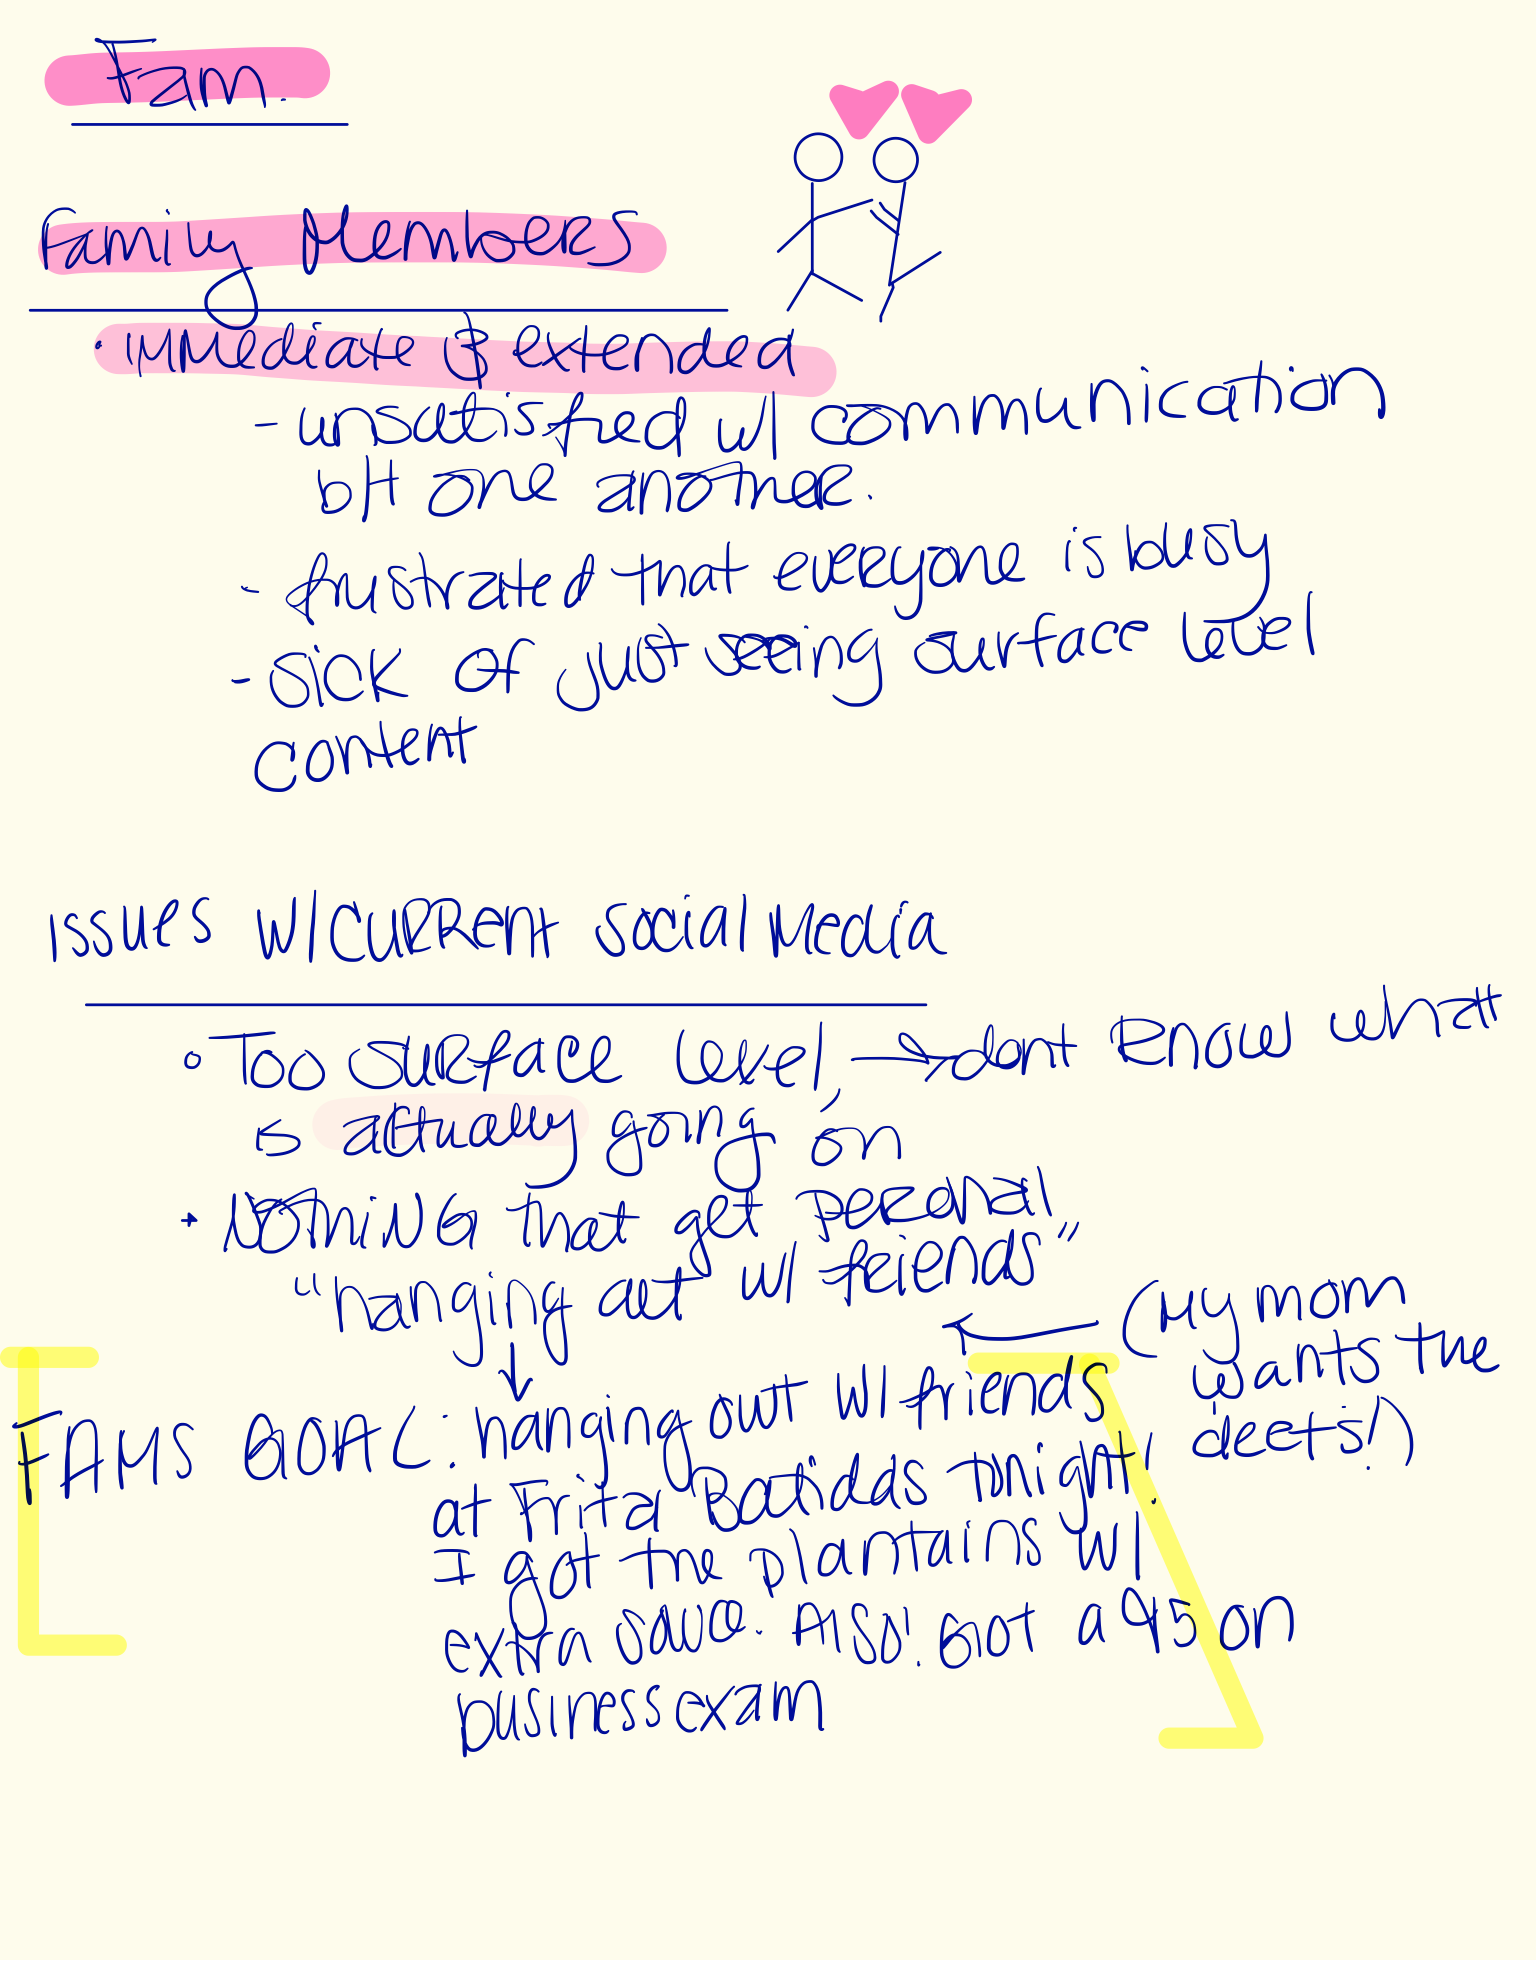 Fam.
Family Members
• immediate & extended
- unsatisfied w/ communication
btt one another.
- frustrated that everyone is busy
- sick of just seeing surface level
content
issues w/current social media
• Too surface level, → dont know what
is actually going on
• NOTHING that get personal
"hanging out w/ friends"
(My mom
wants the
deets!)
FAMS GOAL: hanging out w/ friends
at Frita Batidas tonight!
I got the plantains w/
extra sauce. Also! Got a 95 on
business exam